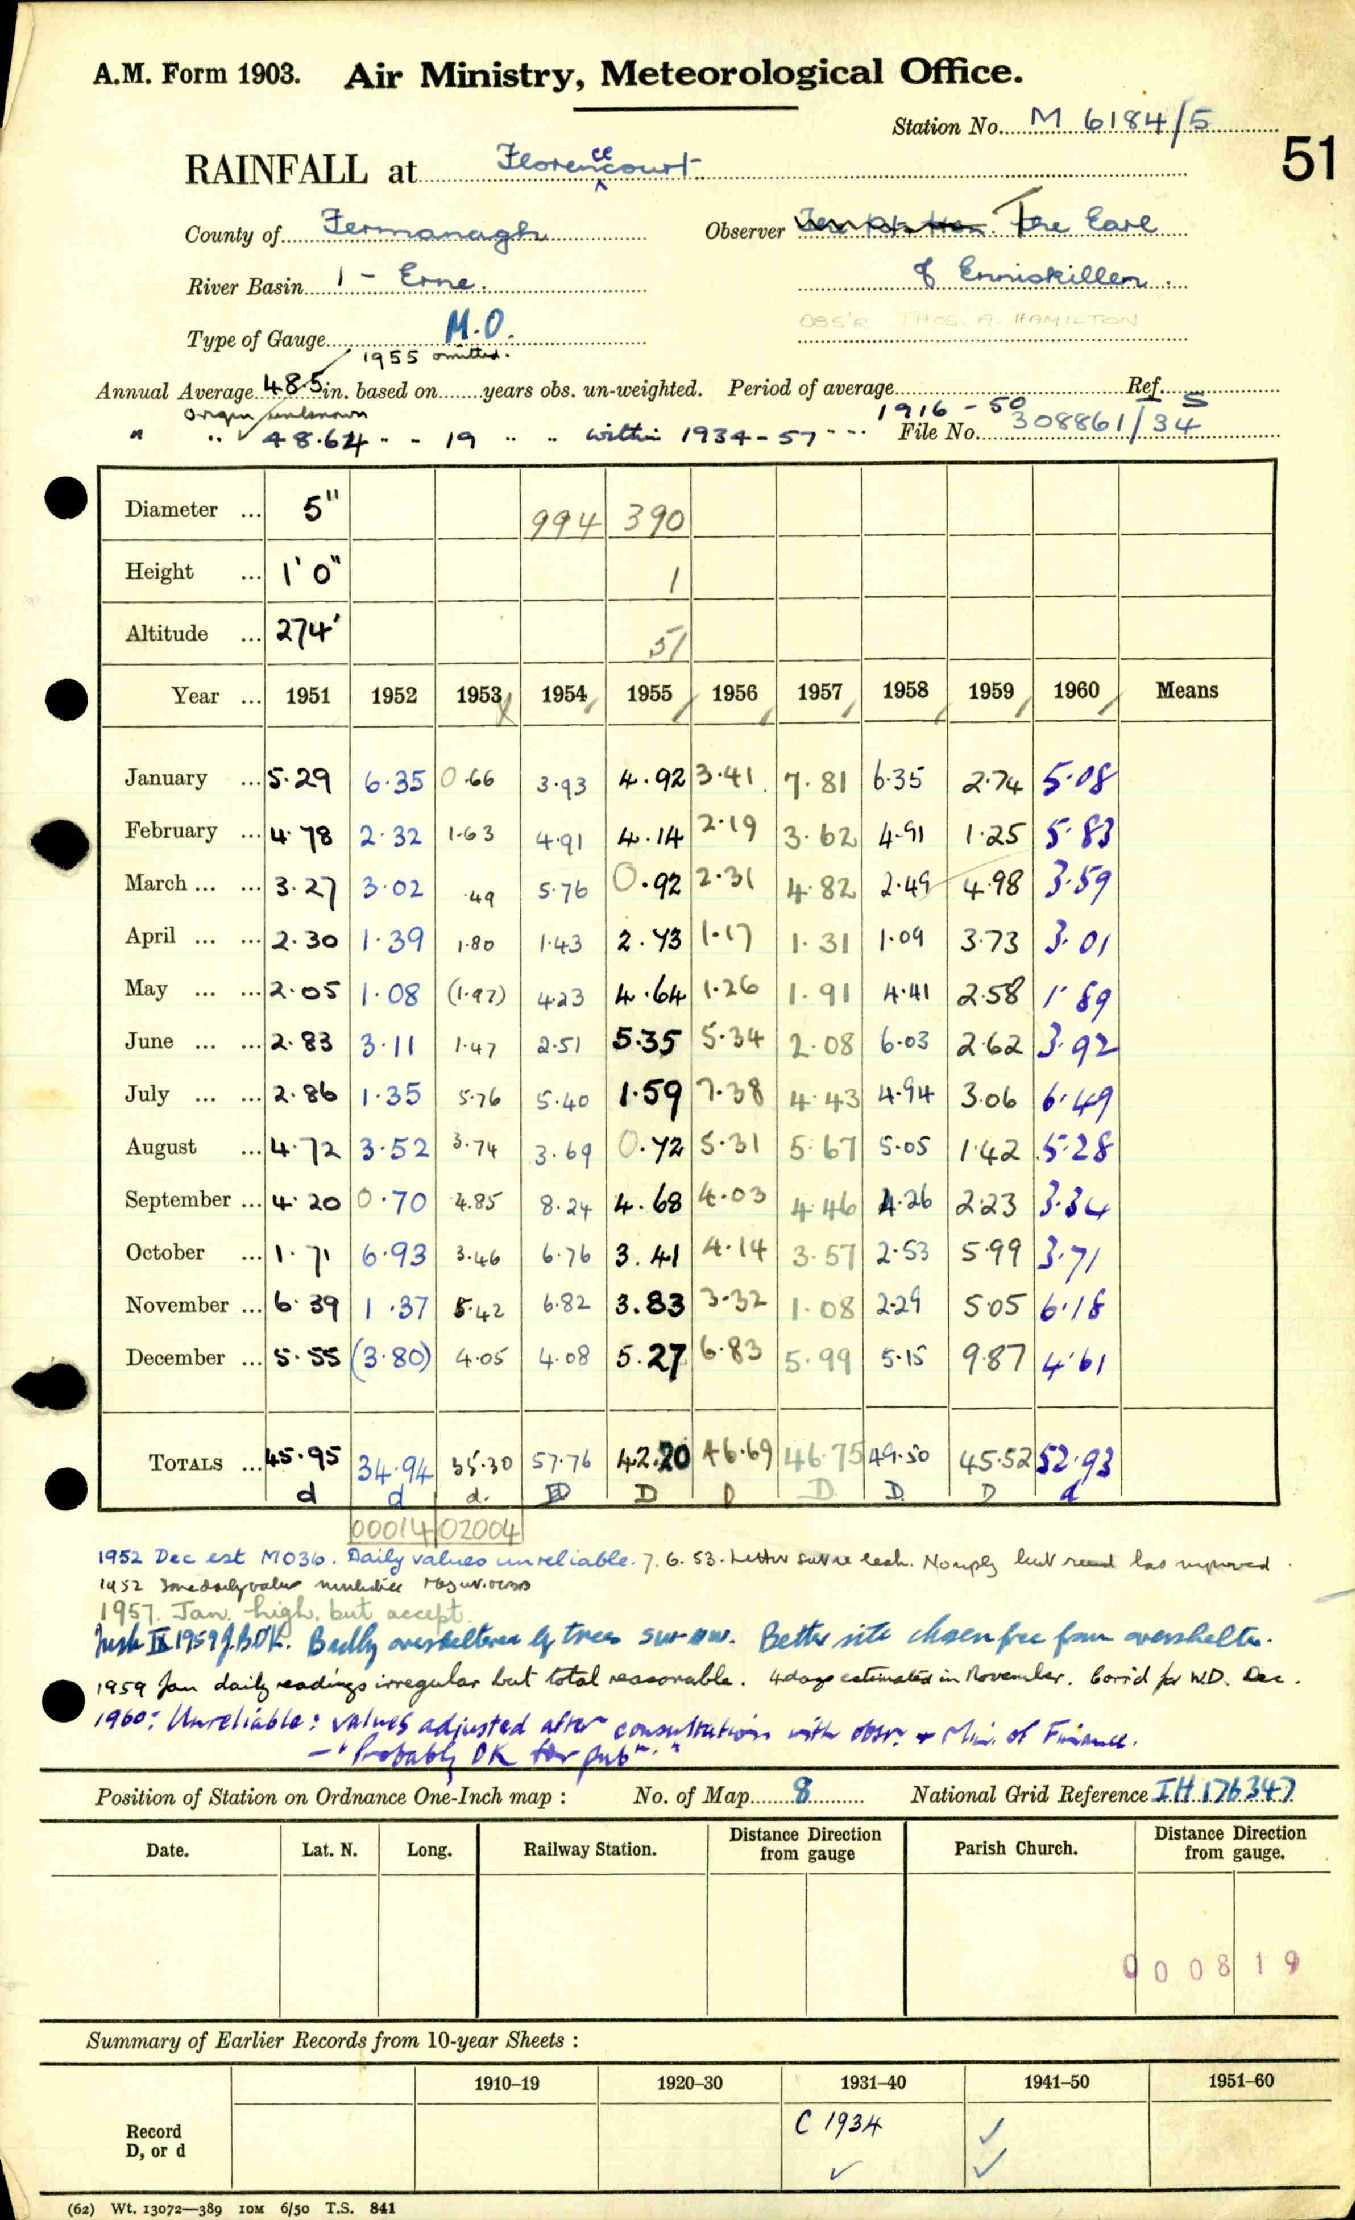 A.M. Form 1903. Air Ministry, Meteorological Office.
Station No. M 6184/5
51
RAINFALL at Florencecourt
County of Fermanagh Observer The Earl
River Basin 1 - Erne. of Enniskillen.
OBS'R THOS. A. HAMILTON
Type of Gauge M.O.
1955 omitted.
Annual Average 48.5 in. based on years obs. un-weighted. Period of average Ref.
origin unknown 1916 - 50 S
" " 48.64 " - 19 " " within 1934-57 " " File No. 308861/34
Diameter ... 5" 994 390
Height ... 1' 0" 1
Altitude ... 274' 51
Year ... 1951 1952 1953 1954 1955 1956 1957 1958 1959 1960 Means
January ... 5.29 6.35 0.66 3.93 4.92 3.41 7.81 6.35 2.74 5.08
February ... 4.78 2.32 1.63 4.91 4.14 2.19 3.62 4.91 1.25 5.83
March ... ... 3.27 3.02 .49 5.76 0.92 2.31 4.82 2.49 4.98 3.59
April ... ... 2.30 1.39 1.80 1.43 2.73 1.17 1.31 1.09 3.73 3.01
May ... ... 2.05 1.08 (1.97) 4.23 4.64 1.26 1.91 4.41 2.58 1.89
June ... ... 2.83 3.11 1.47 2.51 5.35 5.34 2.08 6.03 2.62 3.92
July ... ... 2.86 1.35 5.76 5.40 1.59 7.38 4.43 4.94 3.06 6.49
August ... 4.72 3.52 3.74 3.69 0.72 5.31 5.67 5.05 1.42 5.28
September ... 4.20 0.70 4.85 8.24 4.68 4.03 4.46 4.26 2.23 3.34
October ... 1.71 6.93 3.46 6.76 3.41 4.14 3.57 2.53 5.99 3.71
November ... 6.39 1.37 5.42 6.82 3.83 3.32 1.08 2.29 5.05 6.18
December ... 5.55 (3.80) 4.05 4.08 5.27 6.83 5.99 5.15 9.87 4.61
TOTALS ... 45.95 34.94 35.30 57.76 42.20 46.69 46.75 49.50 45.52 52.93
d d d. D D D D D D d
00014 02004
1952 Dec est MO36. Daily values unreliable. 7.6.53. Letter leak. No reply but has improved.
1952 Some daily values
1957. Jan. high, but accept.
IX 1959 Badly oversheltered by trees SW-NW. Better site chosen free from overshelter.
1959 Jan daily readings irregular but total reasonable. 4 days estimated in November. Corr'd for W.D. Dec.
1960: Unreliable: values adjusted after consultation with obsr. + Min. of Finance.
— "Probably OK for pubn."
Position of Station on Ordnance One-Inch map : No. of Map 8 National Grid Reference IH 176347
Date. Lat. N. Long. Railway Station. Distance Direction from gauge Parish Church. Distance Direction from gauge.
000819
Summary of Earlier Records from 10-year Sheets :
1910–19 1920–30 1931–40 1941–50 1951–60
Record D, or d C 1934 ✓ ✓ ✓
(62) Wt. 13072—389 10M 6/50 T.S. 841